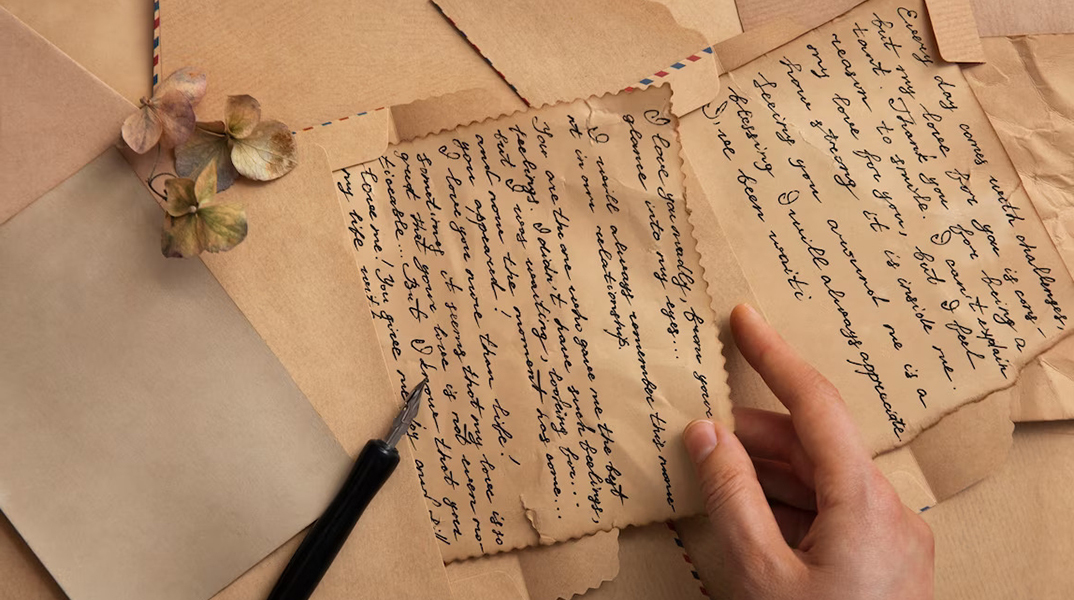 I love you madly, from your
glance into my eyes...
I will always remember this mome
nt in our relationship.
You are the one who gave me the best
feelings. I didn't have such feelings,
but I was waiting, looking for...
and now the moment has come...
you appeared!
I love you more than life!
sometimes it seems that my love is so
great that your love is not even no-
ticeable... But I know that you
love me! You give me and
my life
Every day comes with challenges,
but my love for you is cons-
tant. Thank you for being a
reason to smile. I can't explain
my love for you, but I feel
how strong it is inside me.
Seeing you around me is a
blessing I will always appreciate.
I've been waiti